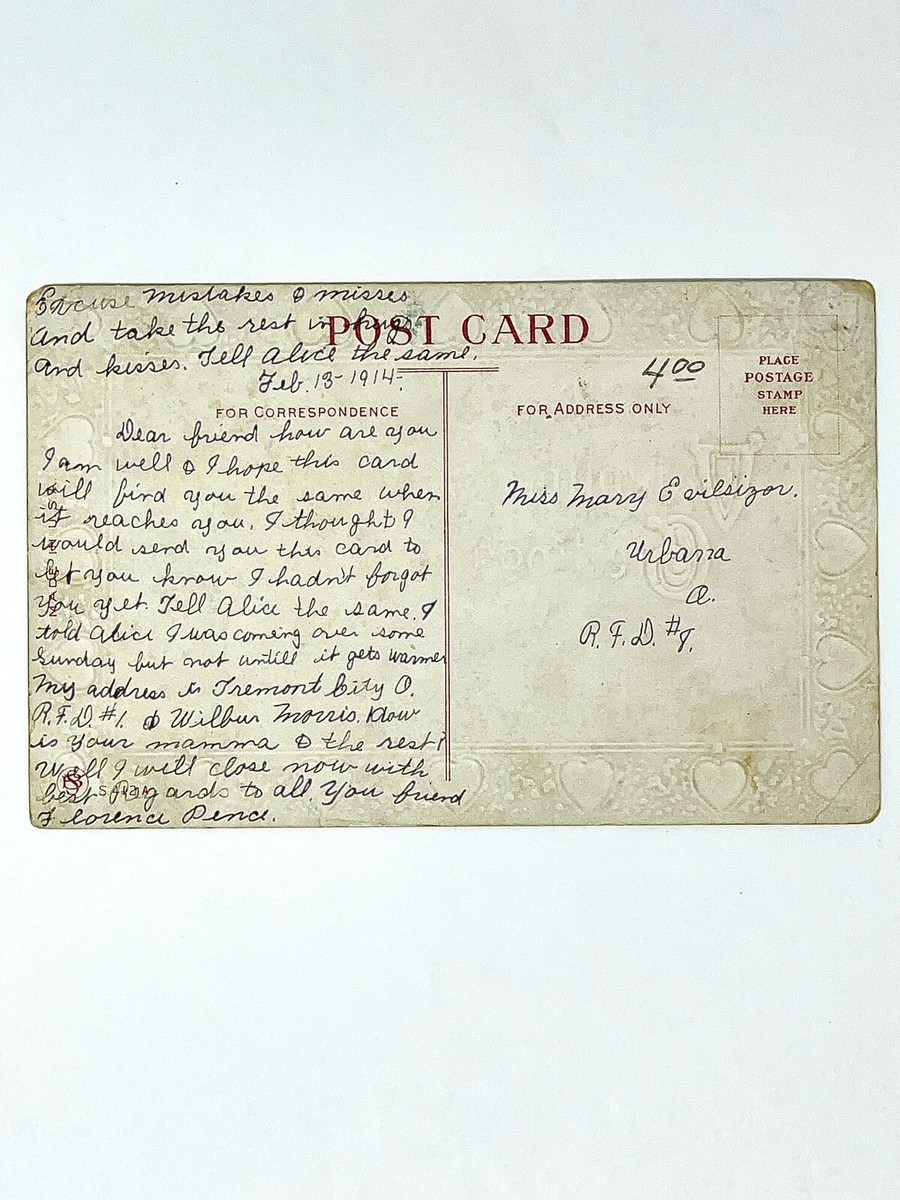 Excuse Mistakes & misses
And take the rest in hugs
And kisses. Tell Alice the same.
Feb. 13- 1914.
POST CARD
FOR CORRESPONDENCE
Dear friend how are you
I am well & I hope this card
will find you the same when
it reaches you. I thought I
would send you this card to
let you know I hadn't forgot
you yet. Tell Alice the same. I
told Alice I was coming over some
Sunday but not untill it gets warmer
My address is Tremont City O.
R.F.D. #1. & Wilbur Morris. How
is your mamma & the rest?
Well I will close now with
best regards to all. You friend
Florence Pence.
MADE IN USA
S
400
PLACE
POSTAGE
STAMP
HERE
FOR ADDRESS ONLY
Miss Mary Evilsizor.
Urbana
O.
R.F.D. #